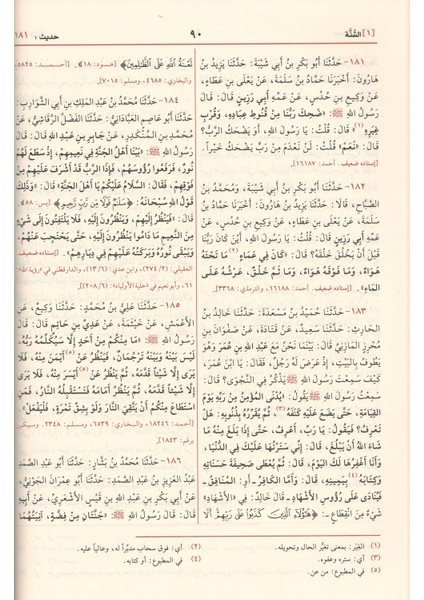 [١] السُّنَّة
٩٠
حديث : ١٨١
١٨١- حَدَّثَنَا أَبُو بَكْرِ بنُ أَبِي شَيْبَةَ: حَدَّثَنَا يَزِيدُ بنُ
هَارُونَ: أَخْبَرَنَا حَمَّادُ بنُ سَلَمَةَ، عَنْ يَعْلَى بنِ عَطَاءٍ،
عَنْ وَكِيعِ بنِ حُدُسٍ، عَنْ عَمِّهِ أَبِي رَزِينٍ قَالَ: قَالَ
رَسُولُ اللهِ ﷺ: «ضَحِكَ رَبُّنَا مِنْ قُنُوطِ عِبَادِهِ، وَقُرْبِ
غِيَرِهِ»(١) قَالَ: قُلْتُ: يَا رَسُولَ اللهِ، أَوَ يَضْحَكُ الرَّبُّ؟
قَالَ: «نَعَمْ» قُلْتُ: لَنْ نَعْدَمَ مِنْ رَبٍّ يَضْحَكُ خَيْراً.
[إسناده ضعيف. أحمد: ١٦١٨٧].
١٨٢- حَدَّثَنَا أَبُو بَكْرِ بنُ أَبِي شَيْبَةَ، وَمُحَمَّدُ بنُ
الصَّبَّاحِ، قَالَا: حَدَّثَنَا يَزِيدُ بنُ هَارُونَ: أَخْبَرَنَا حَمَّادُ بنُ
سَلَمَةَ، عَنْ يَعْلَى بنِ عَطَاءٍ، عَنْ وَكِيعِ بنِ حُدُسٍ، عَنْ
عَمِّهِ أَبِي رَزِينٍ قَالَ: قُلْتُ: يَا رَسُولَ اللهِ، أَيْنَ كَانَ رَبُّنَا
قَبْلَ أَنْ يَخْلُقَ خَلْقَهُ؟ قَالَ: «كَانَ فِي عَمَاءٍ(٢) مَا تَحْتَهُ
هَوَاءٌ، وَمَا فَوْقَهُ هَوَاءٌ، وَمَا ثَمَّ خَلْقٌ، عَرْشُهُ عَلَى
المَاءِ». [إسناده ضعيف. أحمد: ١٦١٨٨، والترمذي: ٣٣٦٨].
١٨٣- حَدَّثَنَا حُمَيْدُ بنُ مَسْعَدَةَ: حَدَّثَنَا خَالِدُ بنُ
الحَارِثِ: حَدَّثَنَا سَعِيدٌ، عَنْ قَتَادَةَ، عَنْ صَفْوَانَ بنِ
مُحْرِزٍ المَازِنِيِّ قَالَ: بَيْنَمَا نَحْنُ مَعَ عَبْدِ اللهِ بنِ عُمَرَ وَهُوَ
يَطُوفُ بِالبَيْتِ، إِذْ عَرَضَ لَهُ رَجُلٌ، فَقَالَ: يَا ابْنَ عُمَرَ،
كَيْفَ سَمِعْتَ رَسُولَ اللهِ ﷺ يَذْكُرُ فِي النَّجْوَى؟ قَالَ:
سَمِعْتُ رَسُولَ اللهِ ﷺ يَقُولُ: «يُدْنَى المُؤْمِنُ مِنْ رَبِّهِ يَوْمَ
القِيَامَةِ، حَتَّى يَضَعَ عَلَيْهِ كَنَفَهُ(٣)، ثُمَّ يُقَرِّرُهُ بِذُنُوبِهِ: هَلْ
تَعْرِفُ؟ فَيَقُولُ: يَا رَبِّ، أَعْرِفُ، حَتَّى إِذَا بَلَغَ مِنْهُ مَا
شَاءَ اللهُ أَنْ يَبْلُغَ، قَالَ: إِنِّي سَتَرْتُهَا عَلَيْكَ فِي الدُّنْيَا،
وَأَنَا أَغْفِرُهَا لَكَ اليَوْمَ، قَالَ: ثُمَّ يُعْطَى صَحِيفَةَ حَسَنَاتِهِ
وَكِتَابُهُ(٤) بِيَمِينِهِ، قَالَ: وَأَمَّا الكَافِرُ - أَوِ: المُنَافِقُ -
فَيُنَادَى عَلَى رُؤُوسِ الأَشْهَادِ» قَالَ خَالِدٌ: فِي «الأَشْهَادِ»
شَيْءٌ مِنْ انْقِطَاعٍ: ﴿هَٰؤُلَاءِ الَّذِينَ كَذَبُوا عَلَىٰ رَبِّهِمْ أَلَا
لَعْنَةُ اللَّهِ عَلَى الظَّالِمِينَ﴾ [هود: ١٨]. [أحمد: ٥٨٢٥،
والبخاري: ٤٦٨٥، ومسلم: ٧٠١٥].
١٨٤- حَدَّثَنَا مُحَمَّدُ بنُ عَبْدِ المَلِكِ بنِ أَبِي الشَّوَارِبِ:
حَدَّثَنَا أَبُو عَاصِمٍ العَبَّادَانِيُّ: حَدَّثَنَا الفَضْلُ الرَّقَاشِيُّ، عَنْ
مُحَمَّدِ بنِ المُنْكَدِرِ، عَنْ جَابِرِ بنِ عَبْدِ اللهِ قَالَ: قَالَ
رَسُولُ اللهِ ﷺ: «بَيْنَا أَهْلُ الجَنَّةِ فِي نَعِيمِهِمْ، إِذْ سَطَعَ لَهُمْ
نُورٌ، فَرَفَعُوا رُؤُوسَهُمْ، فَإِذَا الرَّبُّ قَدْ أَشْرَفَ عَلَيْهِمْ مِنْ
فَوْقِهِمْ، فَقَالَ: السَّلَامُ عَلَيْكُمْ يَا أَهْلَ الجَنَّةِ» قَالَ: «وَذَلِكَ
قَوْلُ اللهِ سُبْحَانَهُ: ﴿سَلَامٌ قَوْلًا مِنْ رَبٍّ رَحِيمٍ﴾ [يس: ٥٨].
قَالَ: «فَيَنْظُرُ إِلَيْهِمْ، وَيَنْظُرُونَ إِلَيْهِ، فَلَا يَلْتَفِتُونَ إِلَى شَيْءٍ
مِنَ النَّعِيمِ مَا دَامُوا يَنْظُرُونَ إِلَيْهِ، حَتَّى يَحْتَجِبَ عَنْهُمْ،
وَيَبْقَى نُورُهُ وَبَرَكَتُهُ عَلَيْهِمْ فِي دِيَارِهِمْ». [إسناده ضعيف.
العقيلي: (٢/٢٧٤)، وابن عدي: (٦/١٣)، والدارقطني في «رؤية الله»:
٦١، وأبو نعيم في «حلية الأولياء»: (٦/٢٠٨)].
١٨٥- حَدَّثَنَا عَلِيُّ بنُ مُحَمَّدٍ: حَدَّثَنَا وَكِيعٌ، عَنِ
الأَعْمَشِ، عَنْ خَيْثَمَةَ، عَنْ عَدِيِّ بنِ حَاتِمٍ قَالَ: قَالَ
رَسُولُ اللهِ ﷺ: «مَا مِنْكُمْ مِنْ أَحَدٍ إِلَّا سَيُكَلِّمُهُ رَبُّهُ،
لَيْسَ بَيْنَهُ وَبَيْنَهُ تَرْجُمَانٌ، فَيَنْظُرُ عَنْ أَيْمَنَ مِنْهُ، فَلَا
يَرَى إِلَّا شَيْئاً قَدَّمَهُ، ثُمَّ يَنْظُرُ عَنْ أَيْسَرَ مِنْهُ، فَلَا يَرَى
إِلَّا شَيْئاً قَدَّمَهُ، ثُمَّ يَنْظُرُ أَمَامَهُ فَتَسْتَقْبِلُهُ النَّارُ، فَمَنِ
اسْتَطَاعَ مِنْكُمْ أَنْ يَتَّقِيَ النَّارَ وَلَوْ بِشِقِّ تَمْرَةٍ، فَلْيَفْعَلْ».
[أحمد: ١٨٢٤٦، والبخاري: ٦٥٣٩، ومسلم: ٢٣٤٨.
برقم: ١٨٤٣].
١٨٦- حَدَّثَنَا مُحَمَّدُ بنُ بَشَّارٍ: حَدَّثَنَا أَبُو عَبْدِ الصَّمَدِ
عَبْدُ العَزِيزِ بنُ عَبْدِ الصَّمَدِ: حَدَّثَنَا أَبُو عِمْرَانَ الجَوْنِيُّ،
عَنْ أَبِي بَكْرِ بنِ عَبْدِ اللهِ بنِ قَيْسٍ الأَشْعَرِيِّ، عَنْ أَبِيهِ
قَالَ: قَالَ رَسُولُ اللهِ ﷺ: «جَنَّتَانِ مِنْ فِضَّةٍ، آنِيَتُهُمَا
(١) الغِيَر: بمعنى تغيُّر الحال وتحويله.
(٢) أي: فوق سحاب مدبِّراً له، وعالياً عليه.
(٣) أي: ستره وعفوه.
(٤) في المطبوع: أو كتابه.
(٥) في المطبوع: من عن.